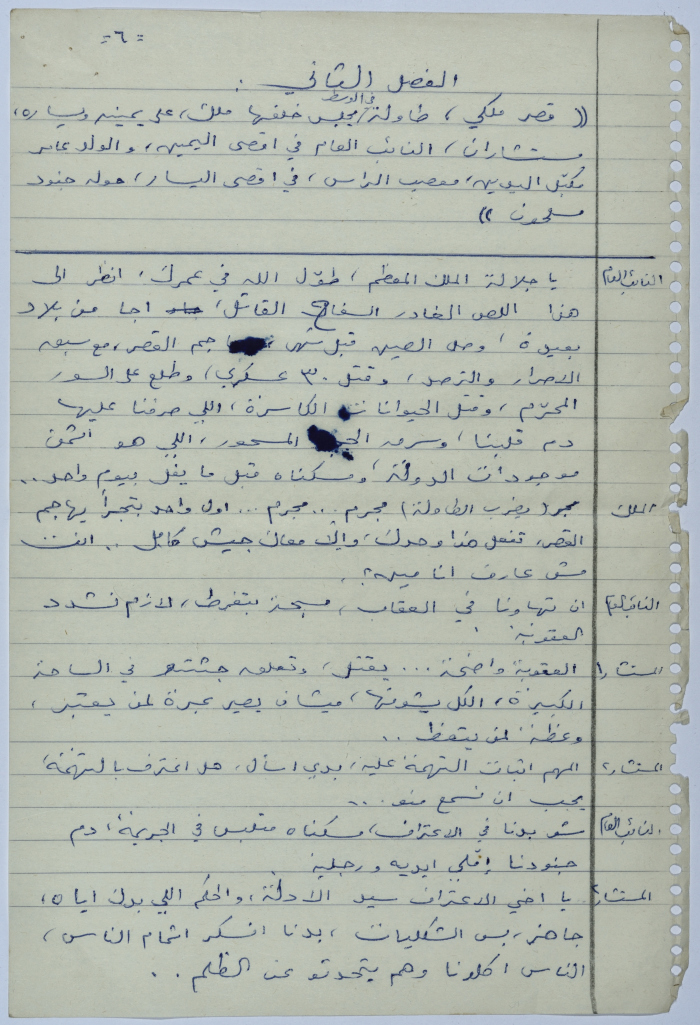 = ٦ =
الفصل الثاني :
(( قصر ملكي ، طاولة في الوسط يجلس خلفها ملك ، على يمينه ويساره ،
مستشاران ، النائب العام في اقصى اليمين ، والولد عامر
مكبّل اليدين ، معصب الراس ، في اقصى اليسار ، حوله جنود
مسلحون ))
النائب العام يا جلالة الملك المعظم ، طوّل الله في عمرك ، انظر الى
هذا اللص الغادر السفاح القاتل ، اجا من بلاد
بعيدة ، وصل الصين قبل شهر هاجم القصر ، مع سبق
الاصرار والترصد ، وقتل ٣٠ عسكري ، وطلع على السور
المحرّم ، وقتل الحيوانات الكاسرة ، اللي صرفنا عليها
دم قلبنا ، وسرق المسحور ، اللي هو اثمن
موجودات الدولة ، ومسكناه قبل ما يفل بيوم واحد ..
الملك ( يضرب الطاولة ) مجرم ... مجرم ... اول واحد بتجرأ يهاجم
القصر ، تفعل هذا وحدك ، والا معاك جيش كامل .. انت
مش عارف انا مين ؟ .
النائب العام ان تهاونا في العقاب ، بتفرط ، لازم نشدد
العقوبة .
المستشار١ العقوبة واضحة ... يقتل ، وتعلق جثته في الساحة
الكبيرة ، الكل يشوفها ، ميشان يصير عبرة لمن يعتبر ،
وعظة لمن يتعظ ..
المستشار٢ المهم اثبات التهمة عليه ، بدي اسأل ، هل اعترف بالتهمة ،
يجب ان نسمع منو ...
النائب العام شو بدنا في الاعتراف ، مسكناه متلبس في الجريمة ، دم
جنودنا إمّلي ايديه ورجليه .
المستشار٢ يا اخي الاعتراف سيد الادلة ، والحكم اللي بدك اياه ،
جاهز ، بس الشكليات ، بدنا انسكر اثمام الناس ،
الناس اكلونا وهم يتحدثو عن الظلم ..